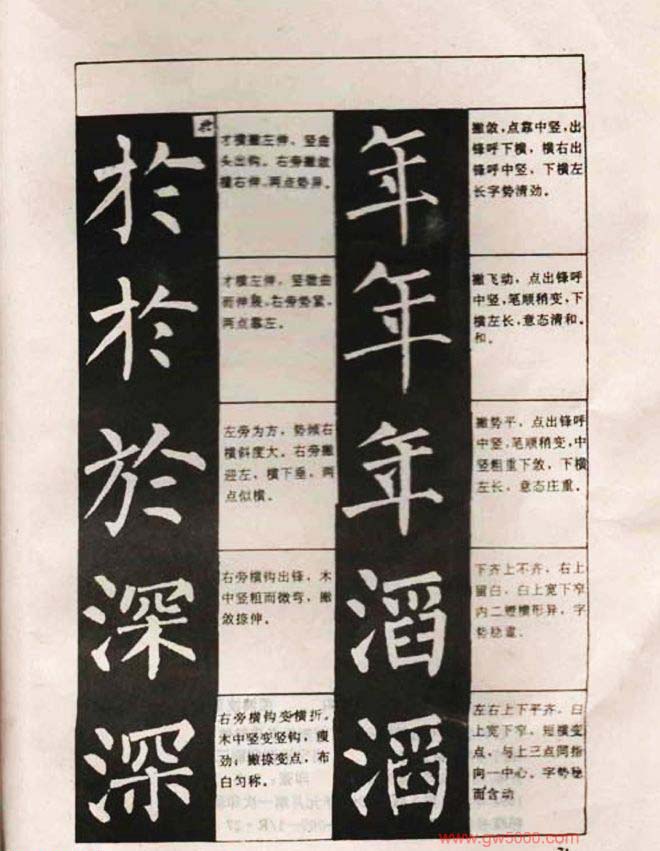 於
才横撇左伸，竖曲
头出钩。右旁撇敛
捺右伸，两点势异。
於
才横左伸，竖微曲
而伸展，右旁势紧，
两点靠左。
於
左旁为方，势倾右
横斜度大。右旁撇
迎左，横下垂，两
点似横。
深
右旁横钩出锋，木
中竖粗而微弯，撇
敛捺伸。
深
右旁横钩变横折。
木中竖变竖钩，瘦
劲，撇捺变点，布
白匀称。
年
撇敛，点靠中竖，出
锋呼下横，横右出
锋呼中竖，下横左
长字势清劲。
年
撇飞动，点出锋呼
中竖，笔顺稍变，下
横左长，意态清和。
和。
年
撇势平，点出锋呼
中竖，笔顺稍变，中
竖粗重下敛，下横
左长，意态庄重。
滔
下齐上不齐，右上
留白，臼上宽下窄
内二短横形异，字
势稳重。
滔
左右上下平齐。臼
上宽下窄，短横变
点，与上三点同指
向一中心。字势稳
而含动
www.gw5000.com